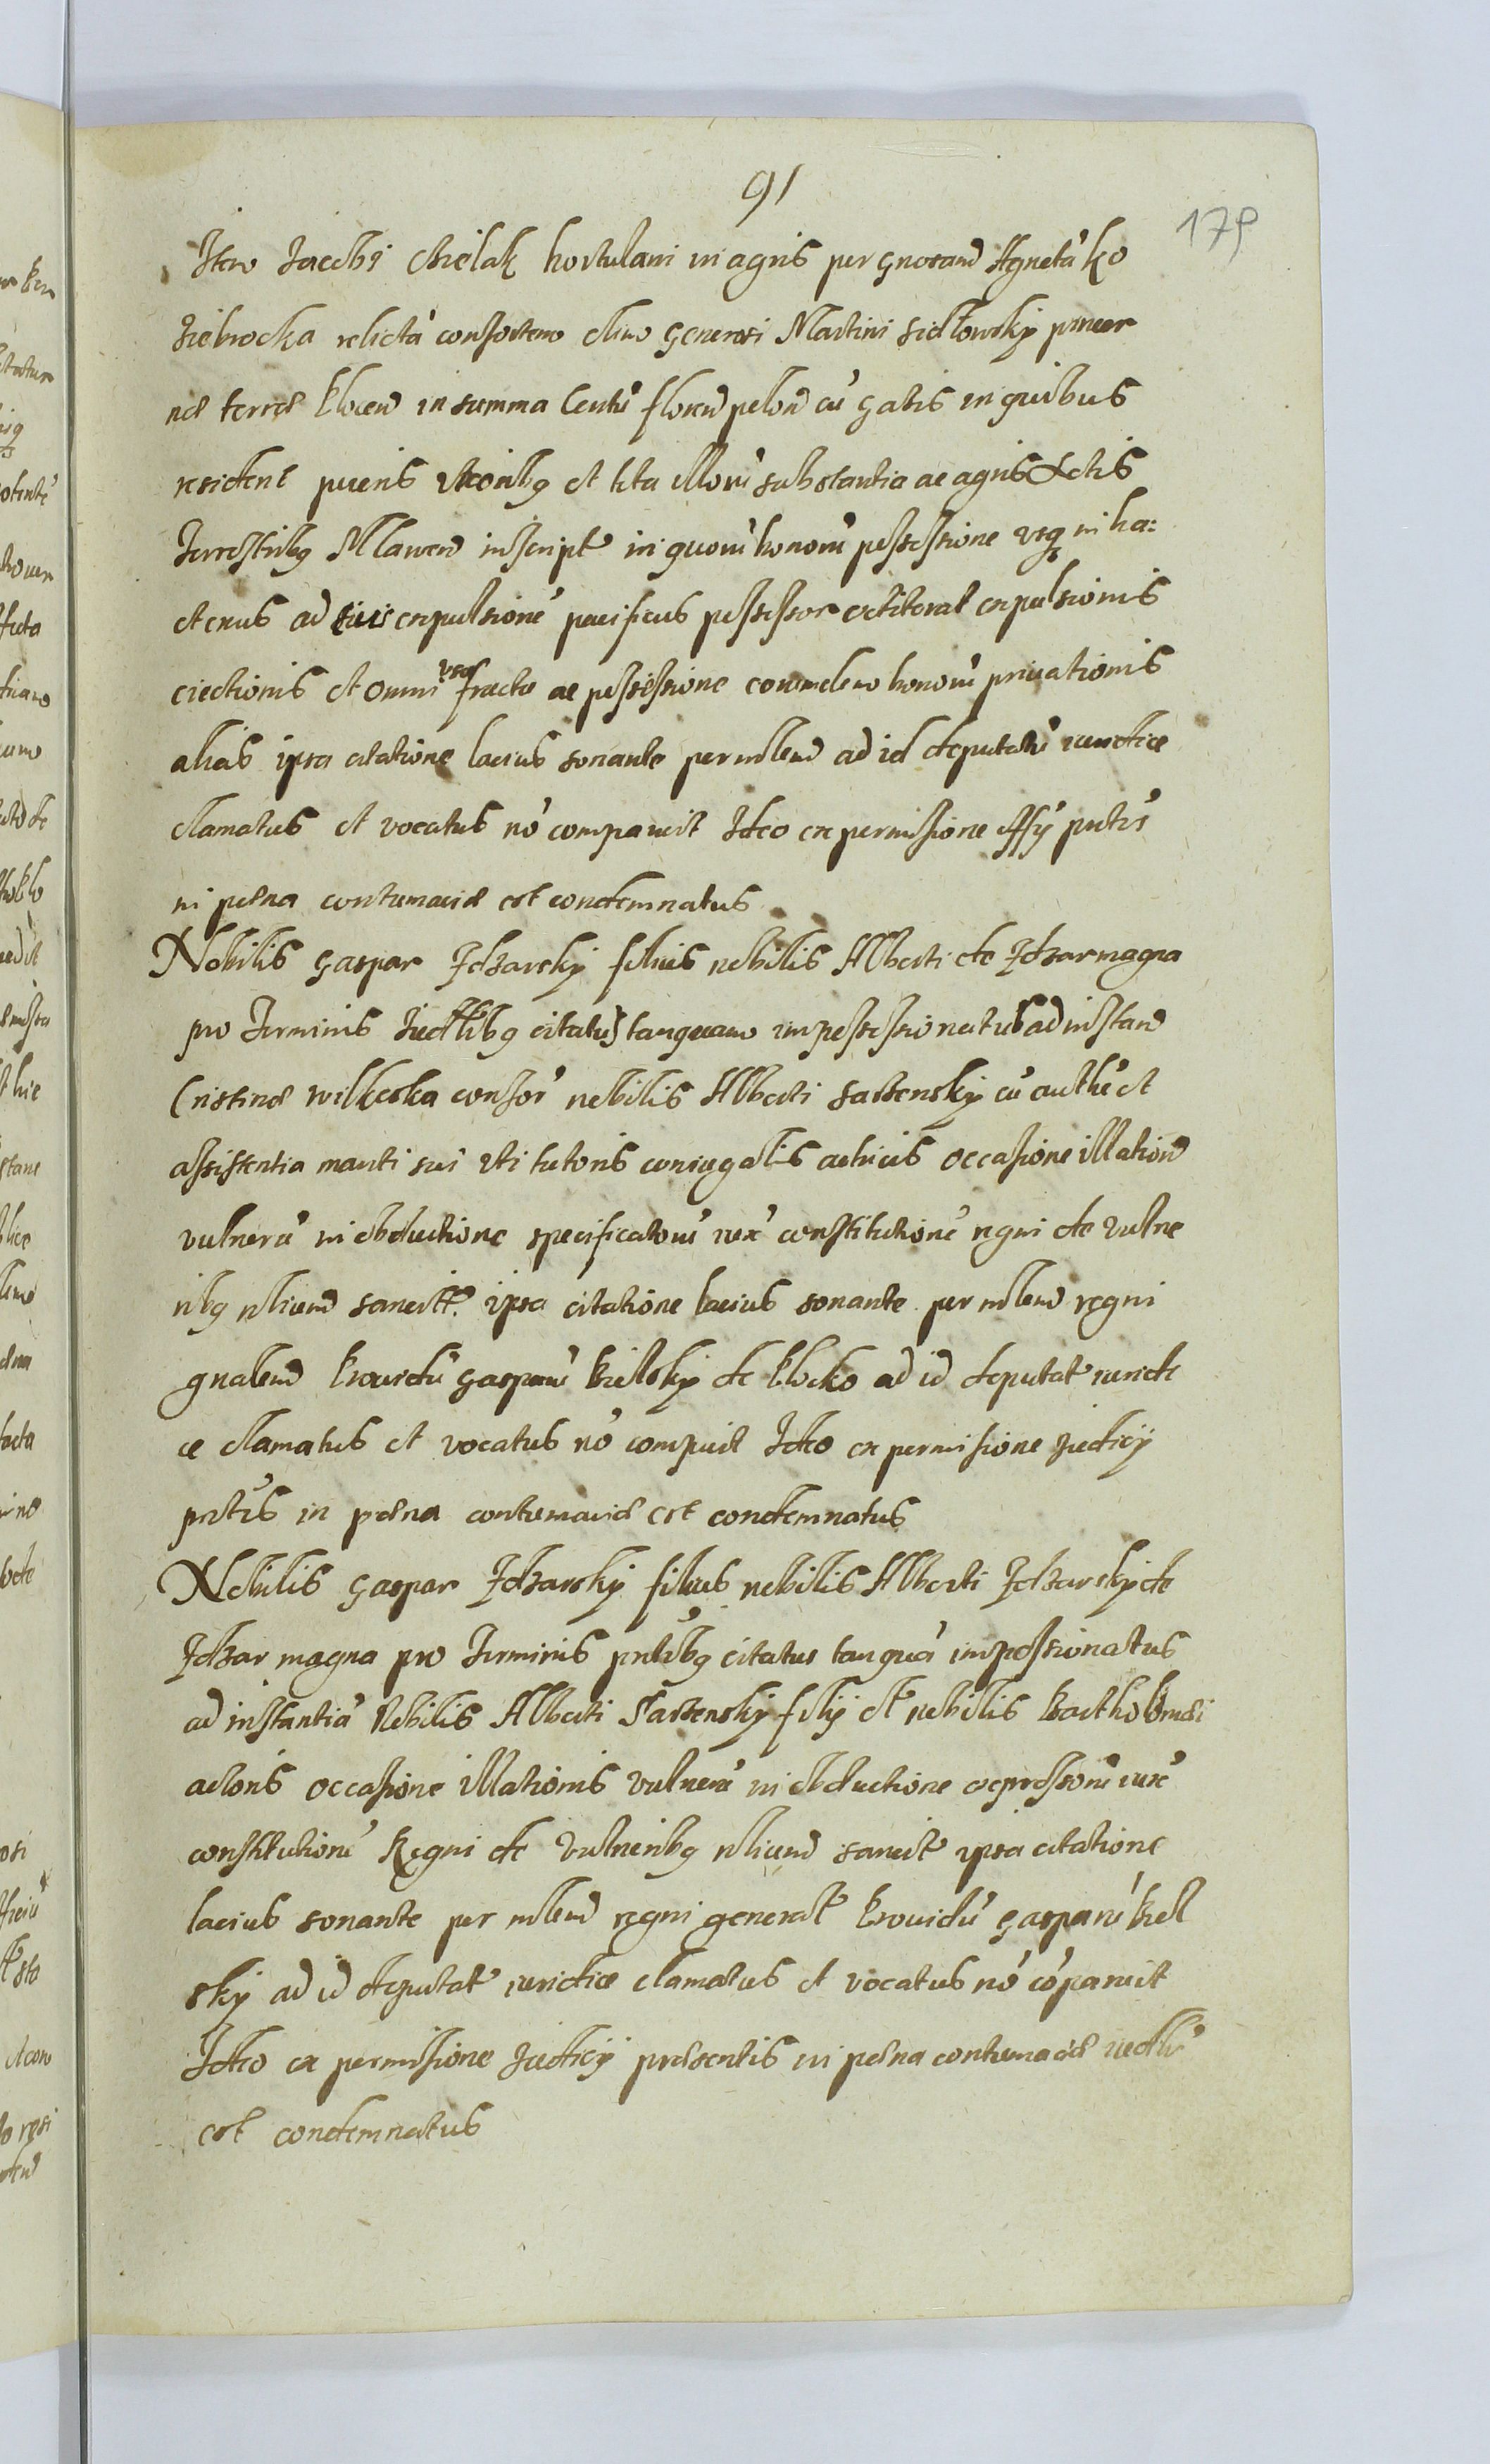 91
175
Item Jacobi Chielak hortulani in agris per gnosam Agnetā Ko
ziebrocka relictā consortem olim Generosi Martini Sidlowsky pincer
nae terrae Plocen in summa Centū floren polon cū gatis in quibus
resident pueris uxoribq et tota illorū substantia ac agris Actis
Terrestribq Mlawen inscript in quorū bonorū possessione usq in ha:
ctenus ad sui expulsionē pacificus possessor extiterat expulsionis
eiectionis et omni usu fructu ac possessione eorundem bonorū privationis
alias ipsa citatione lacius sonante per mlem ad id deputatū iuridice
clamatus et vocatus nō comparuit Ideo ex permissione Offy pntis
in poena contumaciae est condemnatus
Nobilis Gaspar Idzarsky filius nobilis Alberti de Idzar magna
pro Terminis Iudlibq citatus tanquam impossessionatus ad instan
Cristinae Wilkeska consor nobilis Alberti Sarzensky cū authē et
assistentia mariti sui uti tutoris coniugalis actricis occasione illation
vulnerū in obductione specificatorū iux constitutionē regni de vulne
ribq nlium sancit ipsa citatione lacius sonante per mlem regni
gnalem providū Gasparū Bielsky de Plocko ad id deputat iuridi
ce clamatus et vocatus nō compuit Ideo ex permissione Iudicy
pntis in poena contumaciae est condemnatus
Nobilis Gaspar Idzarsky filius nobilis Alberti Idzarsky de
Idzar magna pro Terminis pntibq citatus tanquā impossionatus
ad instantiā Nobilis Alberti Sarzensky fily ol nobilis Bartholomaei
actoris occasione illationis vulnerū in obductione expressorū iux
constitutionē Regni de Vulneribq nlium sancit ipsa citatione
lacius sonante per mlem regni general providū Gasparū Biel
sky ad id deputat iuridice clamatus et vocatus nō cōparuit
Ideo ex permissione Iudicy praesentis in poena contumaciae
est condemnatus